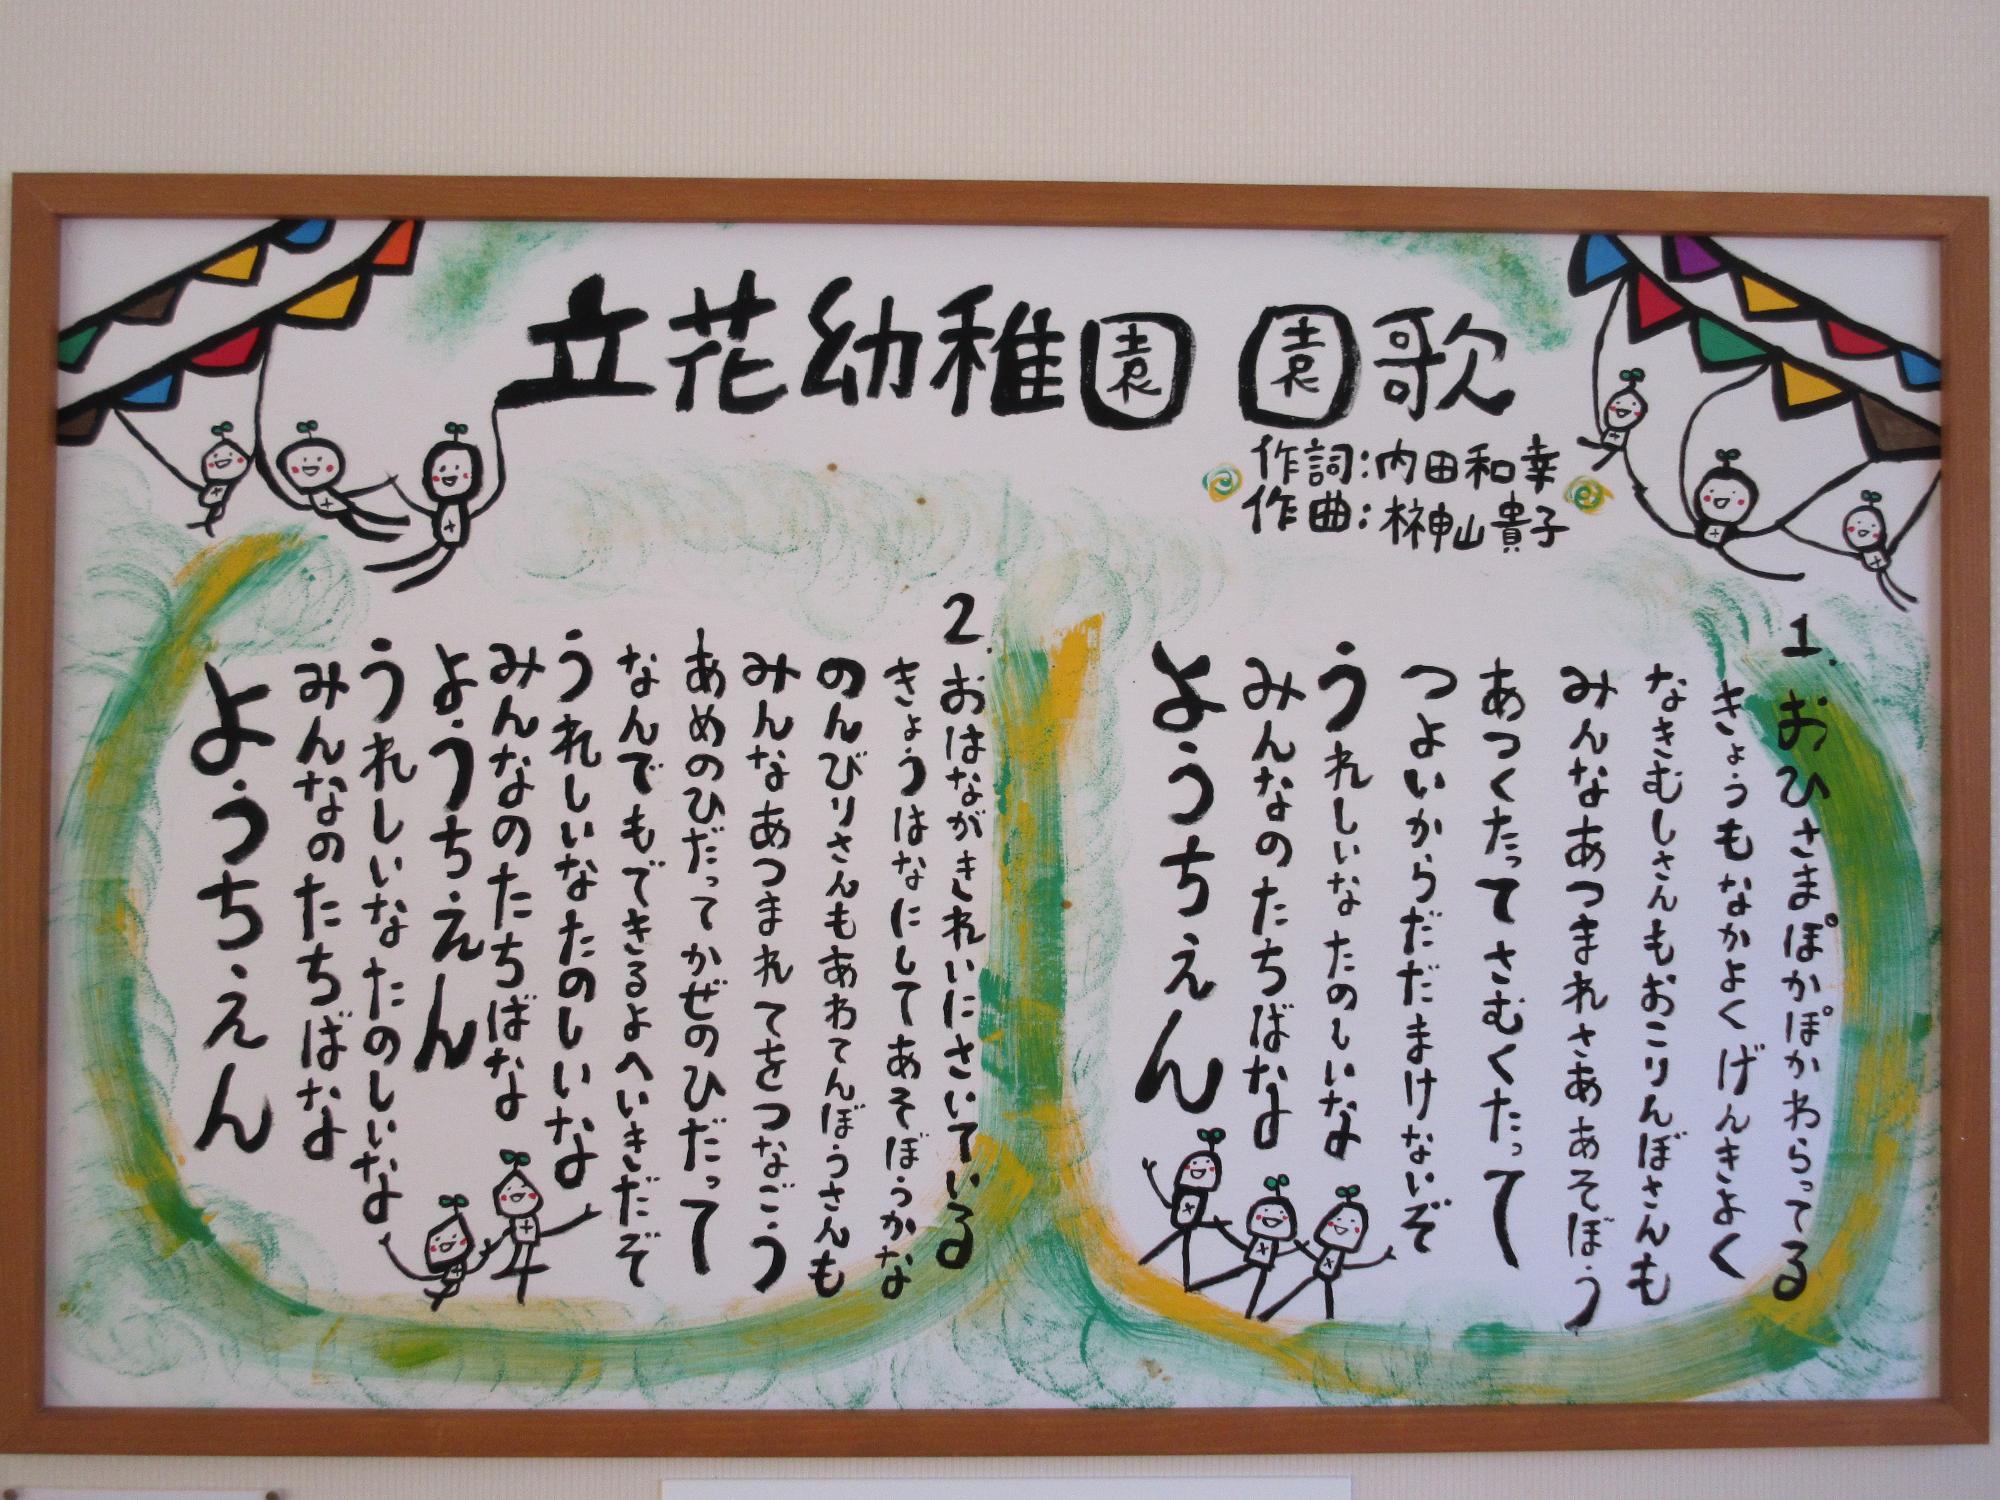 立花幼稚園 園歌
作詞:内田和幸
作曲:榊山貴子
1.おひさまぽかぽかわらってる
きょうもなかよくげんきよく
なきむしさんもおこりんぼさんも
みんなあつまれさああそぼう
あつくたってさむくたって
つよいからだだまけないぞ
うれしいなたのしいな
みんなのたちばな
ようちえん
2.おはながきれいにさいている
きょうはなにしてあそぼうかな
のんびりさんもあわてんぼうさんも
みんなあつまれてをつなごう
あめのひだってかぜのひだって
なんでもできるよへいきだぞ
うれしいなたのしいな
みんなのたちばな
ようちえん
うれしいなたのしいな
みんなのたちばな
ようちえん